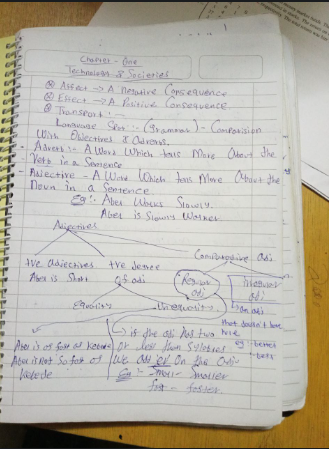 Chapter - One
Technology & Societies
Affect -> A Negative Consequence
Effect -> A Positive Consequence
Transport:
Language Sess:- (Grammar) - Comparision
With Objectives & Adverbs.
- Adverb:- A Word Which tells More About the
Verb in a Sentence
- Adjective - A Word Which tells More About the
Noun in a Sentence
Eg:- Aber Works Slowly.
Aber is Slowly Worker.
Adjectives
Comparative adj
+ve adjectives +ve degree
Aber is Short of adj
Regular adj
Irregular adj
Equality
Inequality
is the adj has two
or less than Sylables
We add er on the adj.
Eg:- Small - smaller
fast - faster
Aber is as fast as Kebede
Aber is Not So fast as
Kebede
an adj
that doesn't have
rule
eg - better
- best